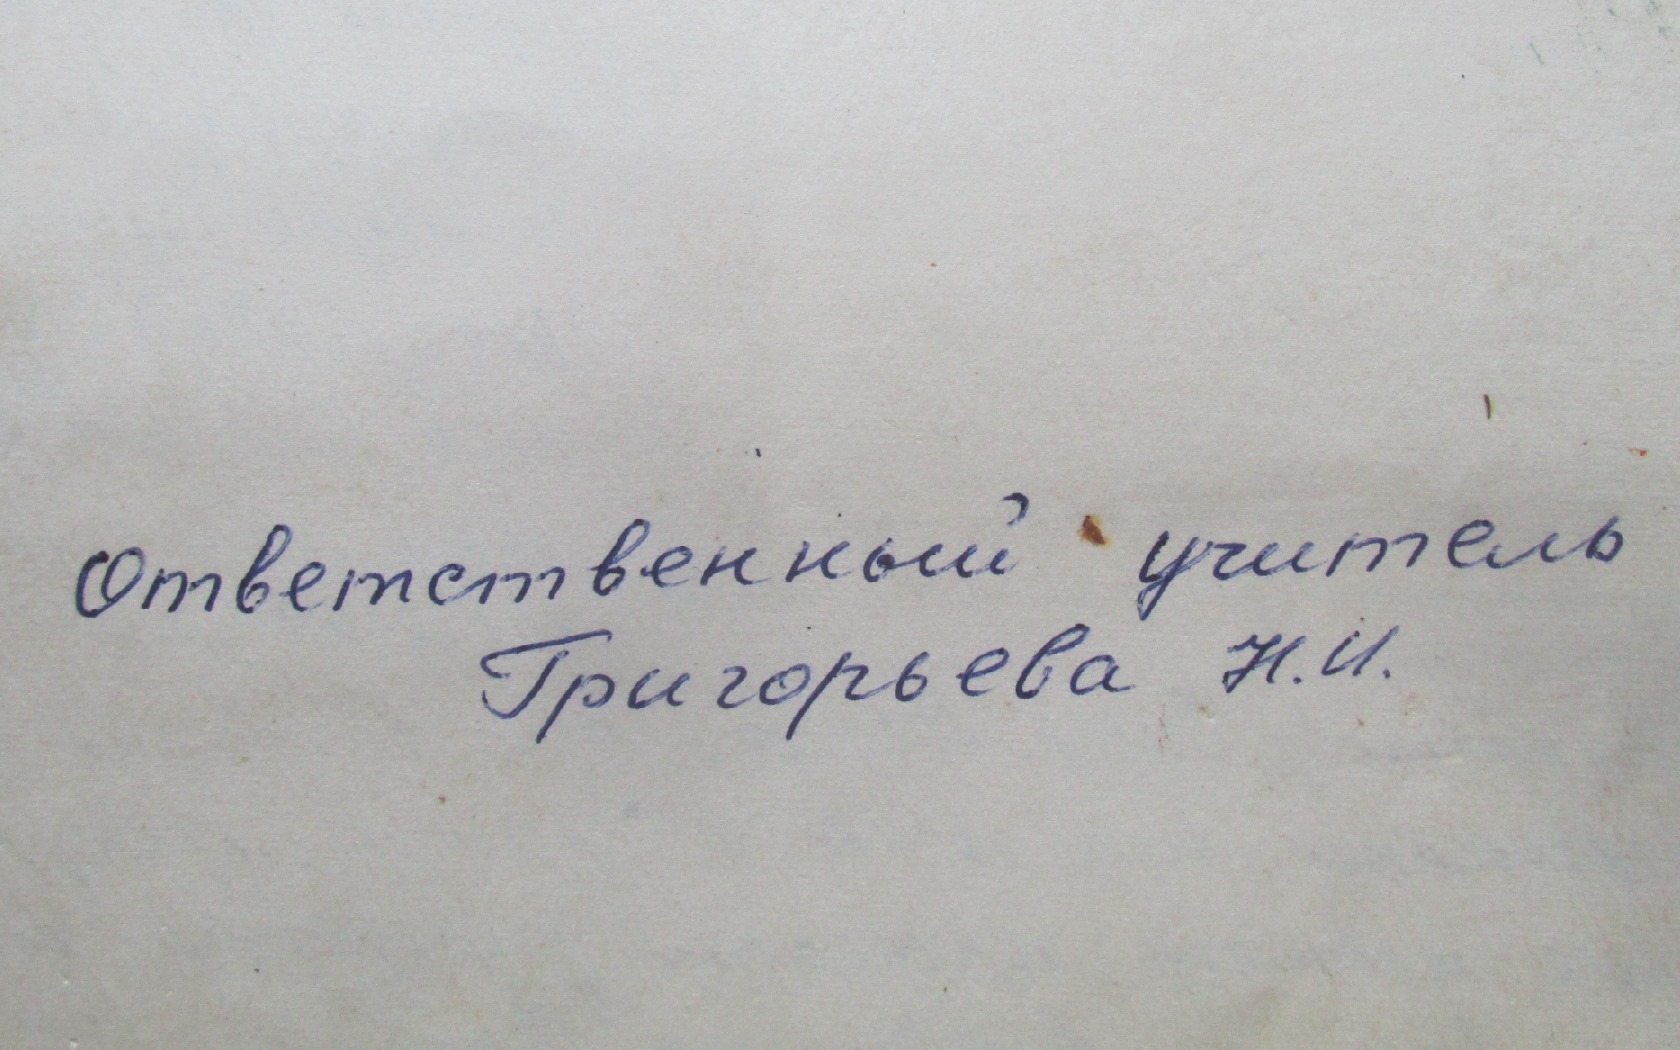 Ответственный учитель
Григорьева Н.И.